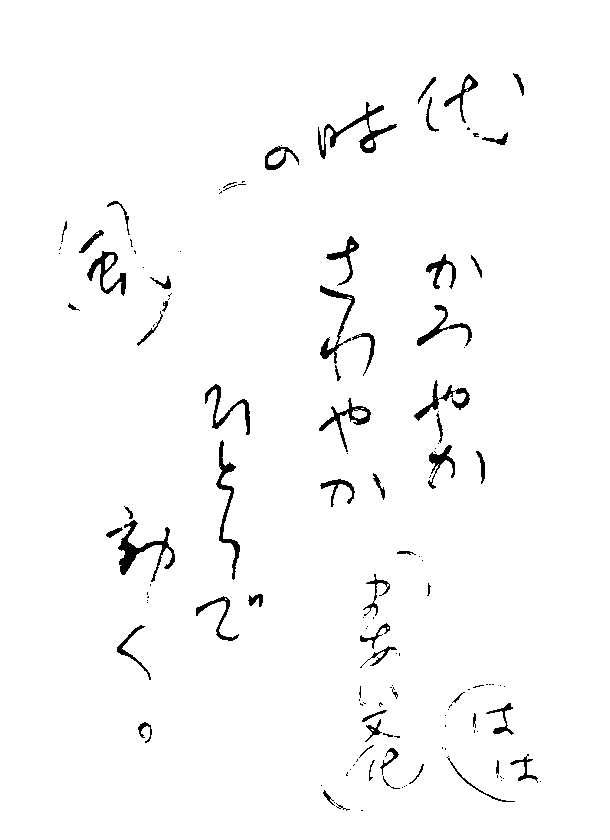 風の時代
かろやか
さわやか
ひとりで
動く。
文化
はは